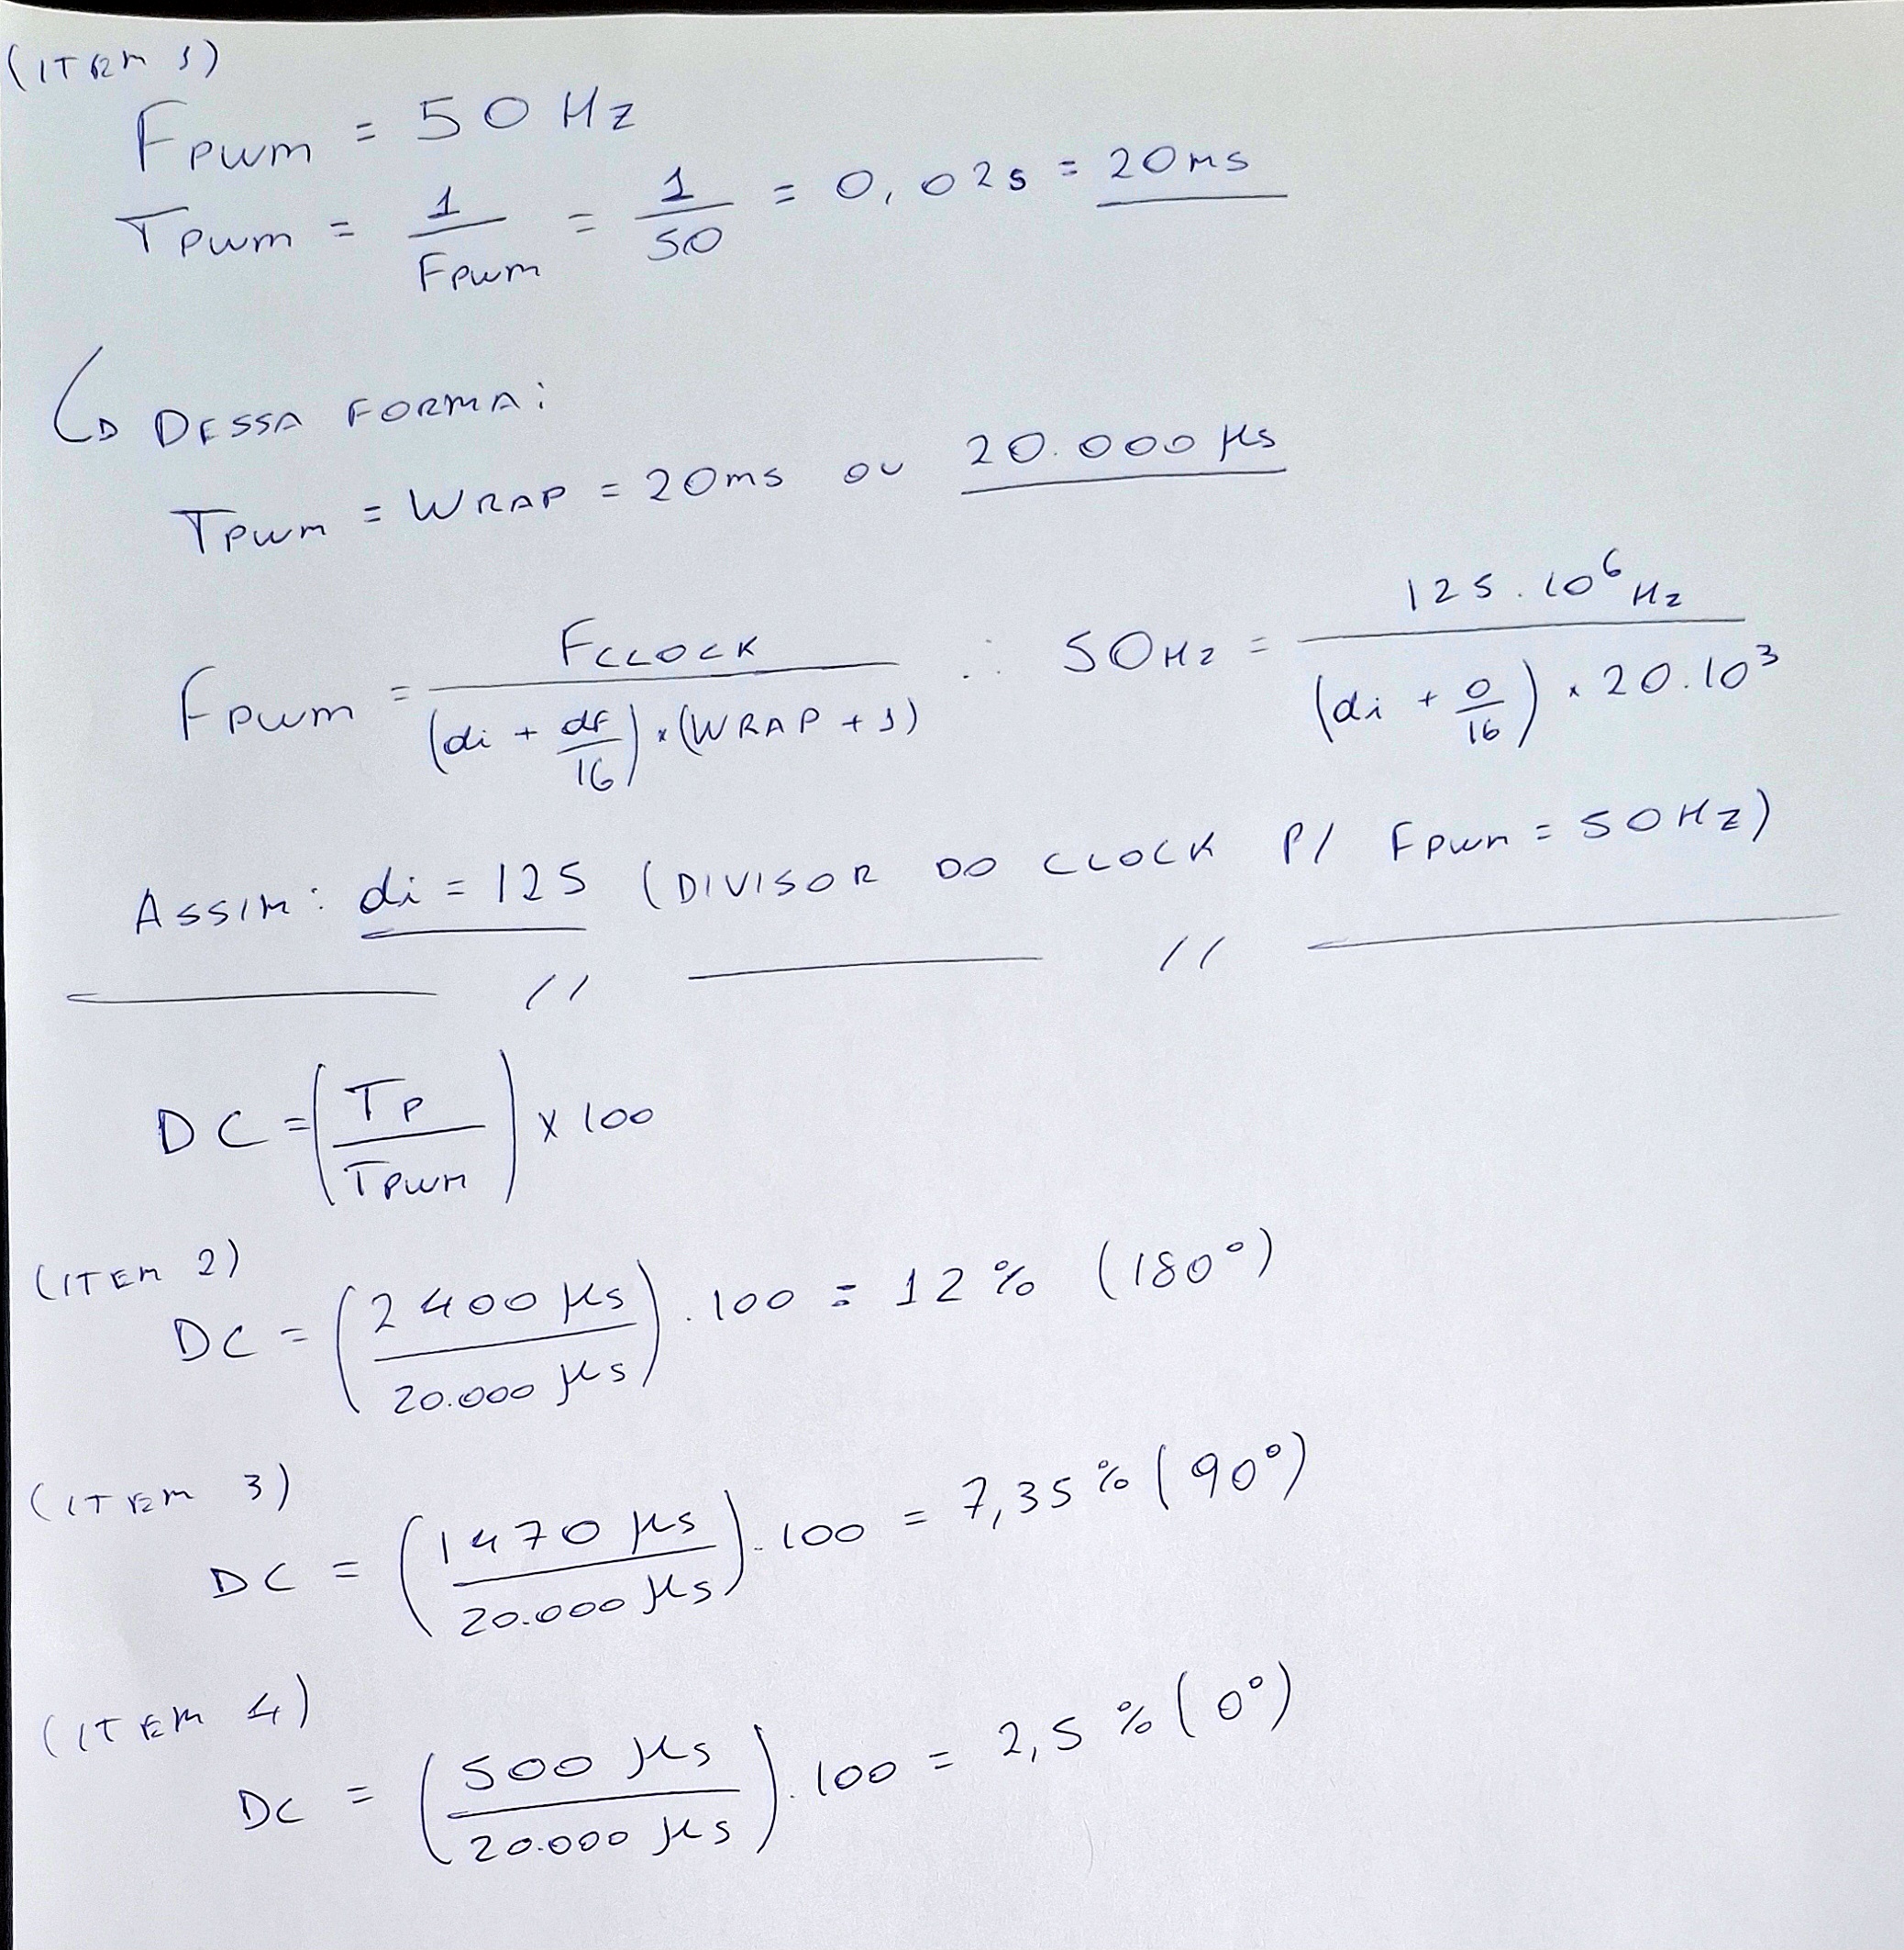 (ITEM 1)
FPWM = 50 Hz
TPWM = 1/FPWM = 1/50 = 0,02s = 20ms
↳ DESSA FORMA:
TPWM = WRAP = 20ms OU 20.000 µs
FPWM = FCLOCK / ((di + df/16) × (WRAP + 1)) ∴ 50Hz = 125.10⁶ Hz / ((di + 0/16) × 20.10³)
ASSIM: di = 125 (DIVISOR DO CLOCK P/ FPWM = 50HZ)
// //
DC = (TP/TPWM) X 100
(ITEM 2)
DC = (2400 µs/20.000 µs) . 100 = 12% (180°)
(ITEM 3)
DC = (1470 µs/20.000 µs) . 100 = 7,35% (90°)
(ITEM 4)
DC = (500 µs/20.000 µs) . 100 = 2,5% (0°)